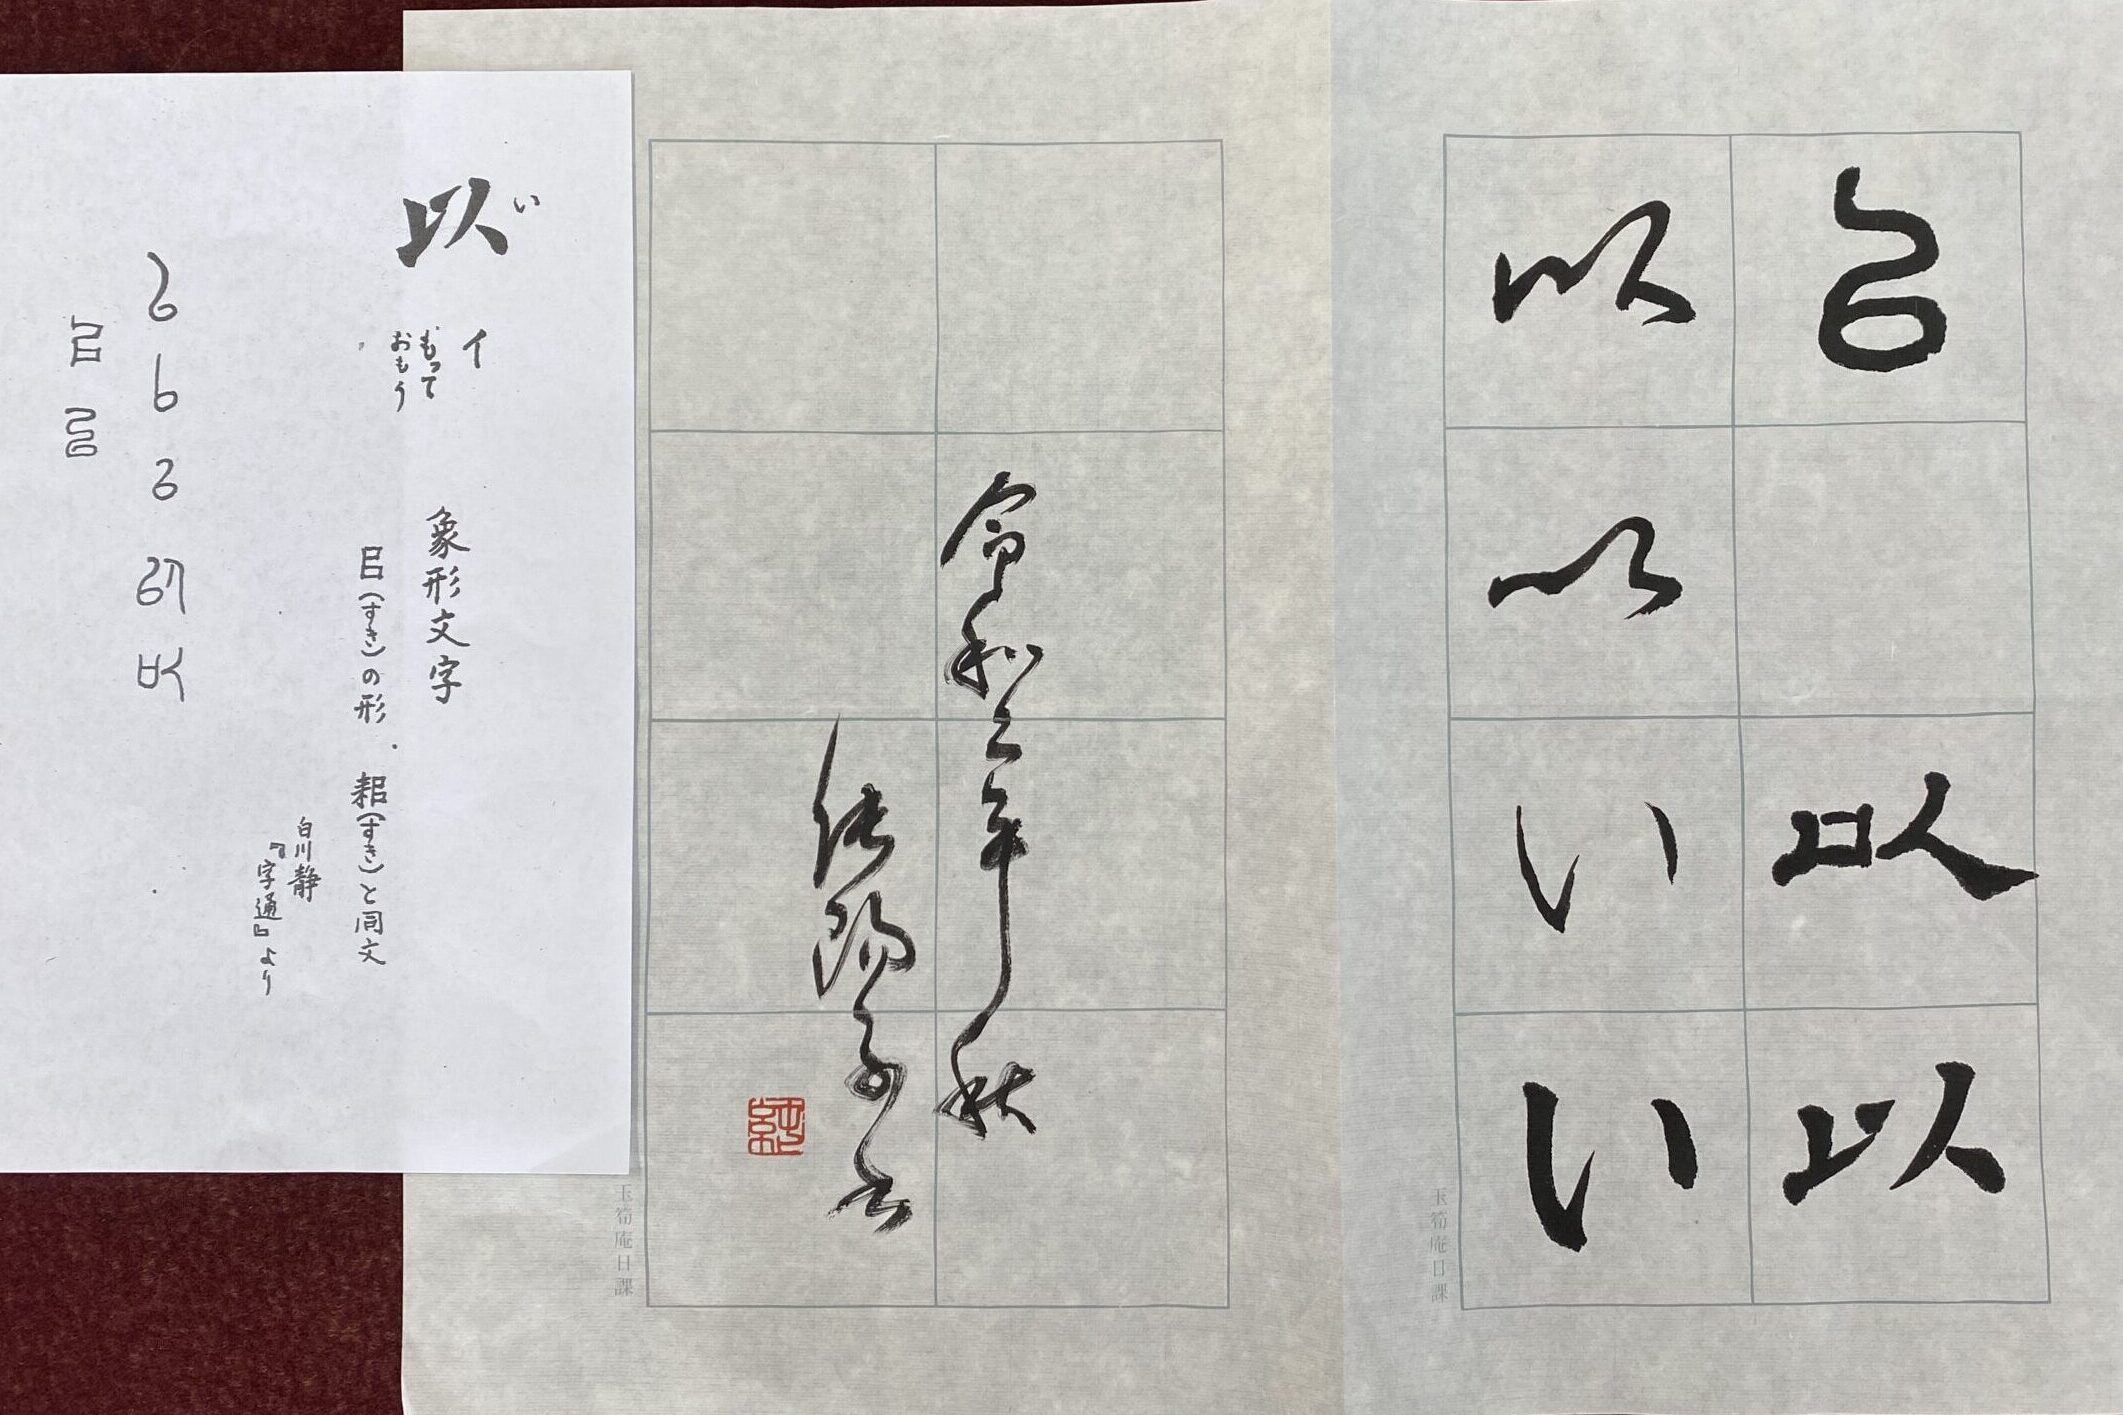 以
い
以
以
以
以
い
い
令和三年秋
玉筍庵日課
玉筍庵日課
以 い
イ
もって
おもう
象形文字
㠯(すき)の形 耜(すき)と同文
白川静
『字通』より